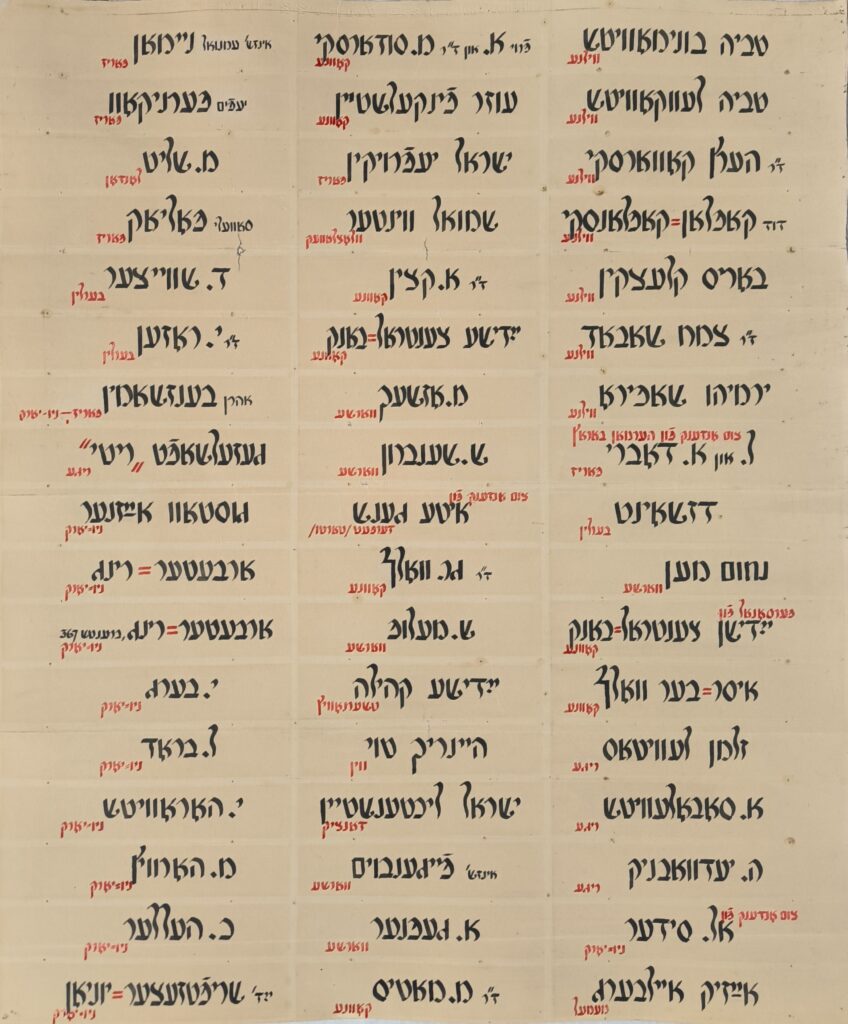 טביה בונימאָוויטש
ווילנע
טביה לעווקאָוויטש
ווילנע
ד״ר הערץ קאָוואַרסקי
ווילנע
דוד קאַפּלאַן=קאַפּלאַנסקי
ווילנע
באָריס קלעצקין
ווילנע
ד״ר צמח שאַבאַד
ווילנע
ירמיהו שאַפּיראָ
ווילנע
צום אָנדענק פֿון הערמאַן באַראַץ
ל. און א. דאָברי
פּאַריז
דזשאָינט
בערלין
נחום מען
וואַרשע
פּערסאָנאַל פֿון
ייִדישן צענטראַל=באַנק
קאָוונע
איסר=בער וואָלף
קאָוונע
זלמן לעוויטאַס
ריגע
א. סאָבאָלעוויטש
ריגע
ה. יעדוואַבניק
ריגע
צום אָנדענק פֿון
אל. סידער
ניו-יאָרק
אײַזיק איילבערג
מעמעל
פֿרוי א. און ד״ר מ. סודאַרסקי
קאָוונע
עוזר פֿינקעלשטיין
קאָוונע
ישראל יעפֿרויקין
פּאַריז
שמואל ווינטער
וולאָצלאַוועק
ד״ר א. קצין
קאָוונע
ייִדישע צענטראַל=באַנק
קאָוונע
מ. אָזשעך
וואַרשע
ש. שענברון
וואַרשע
צום אָנדענק פֿון
איטע גענש
דערפּט /טאַרטו/
ד״ר גר. וואָלף
קאָוונע
ש. מעלופּ
וואַרשע
ייִדישע קהילה
טשערנאָוויץ
היינריך טוי
ווין
ישראל ליכטענשטיין
דאַנציק
אינזש׳ פֿייגענבוים
וואַרשע
א. געפּנער
וואַרשע
ד״ר מ. מאַטיס
קאָוונע
אינזש׳ עמנואל ניימאַן
פּאַריז
יעפֿים פּערניקאָוו
פּאַריז
מ. שליט
לאָנדאָן
סאַוועלי פּאָליאַק
פּאַריז
ד. שווייצער
בערלין
ד״ר י. ראָזען
בערלין
אהרן בענזשאַמין
פּאַריז–ניו-יאָרק
געזעלשאַפֿט „ריטי”
ריגע
גוסטאַוו אײַזנער
ניו-יאָרק
אַרבעטער=רינג
ניו-יאָרק
אַרבעטער=רינג, ברענטש 367
ניו-יאָרק
י. בערג
ניו-יאָרק
ל. בראָד
ניו-יאָרק
י. האָראָוויטש
ניו-יאָרק
מ. האָרוויץ
ניו-יאָרק
כ. העללער
ניו-יאָרק
ייִד׳ שריפֿטזעצער=יוניאָן
ניו-יאָרק